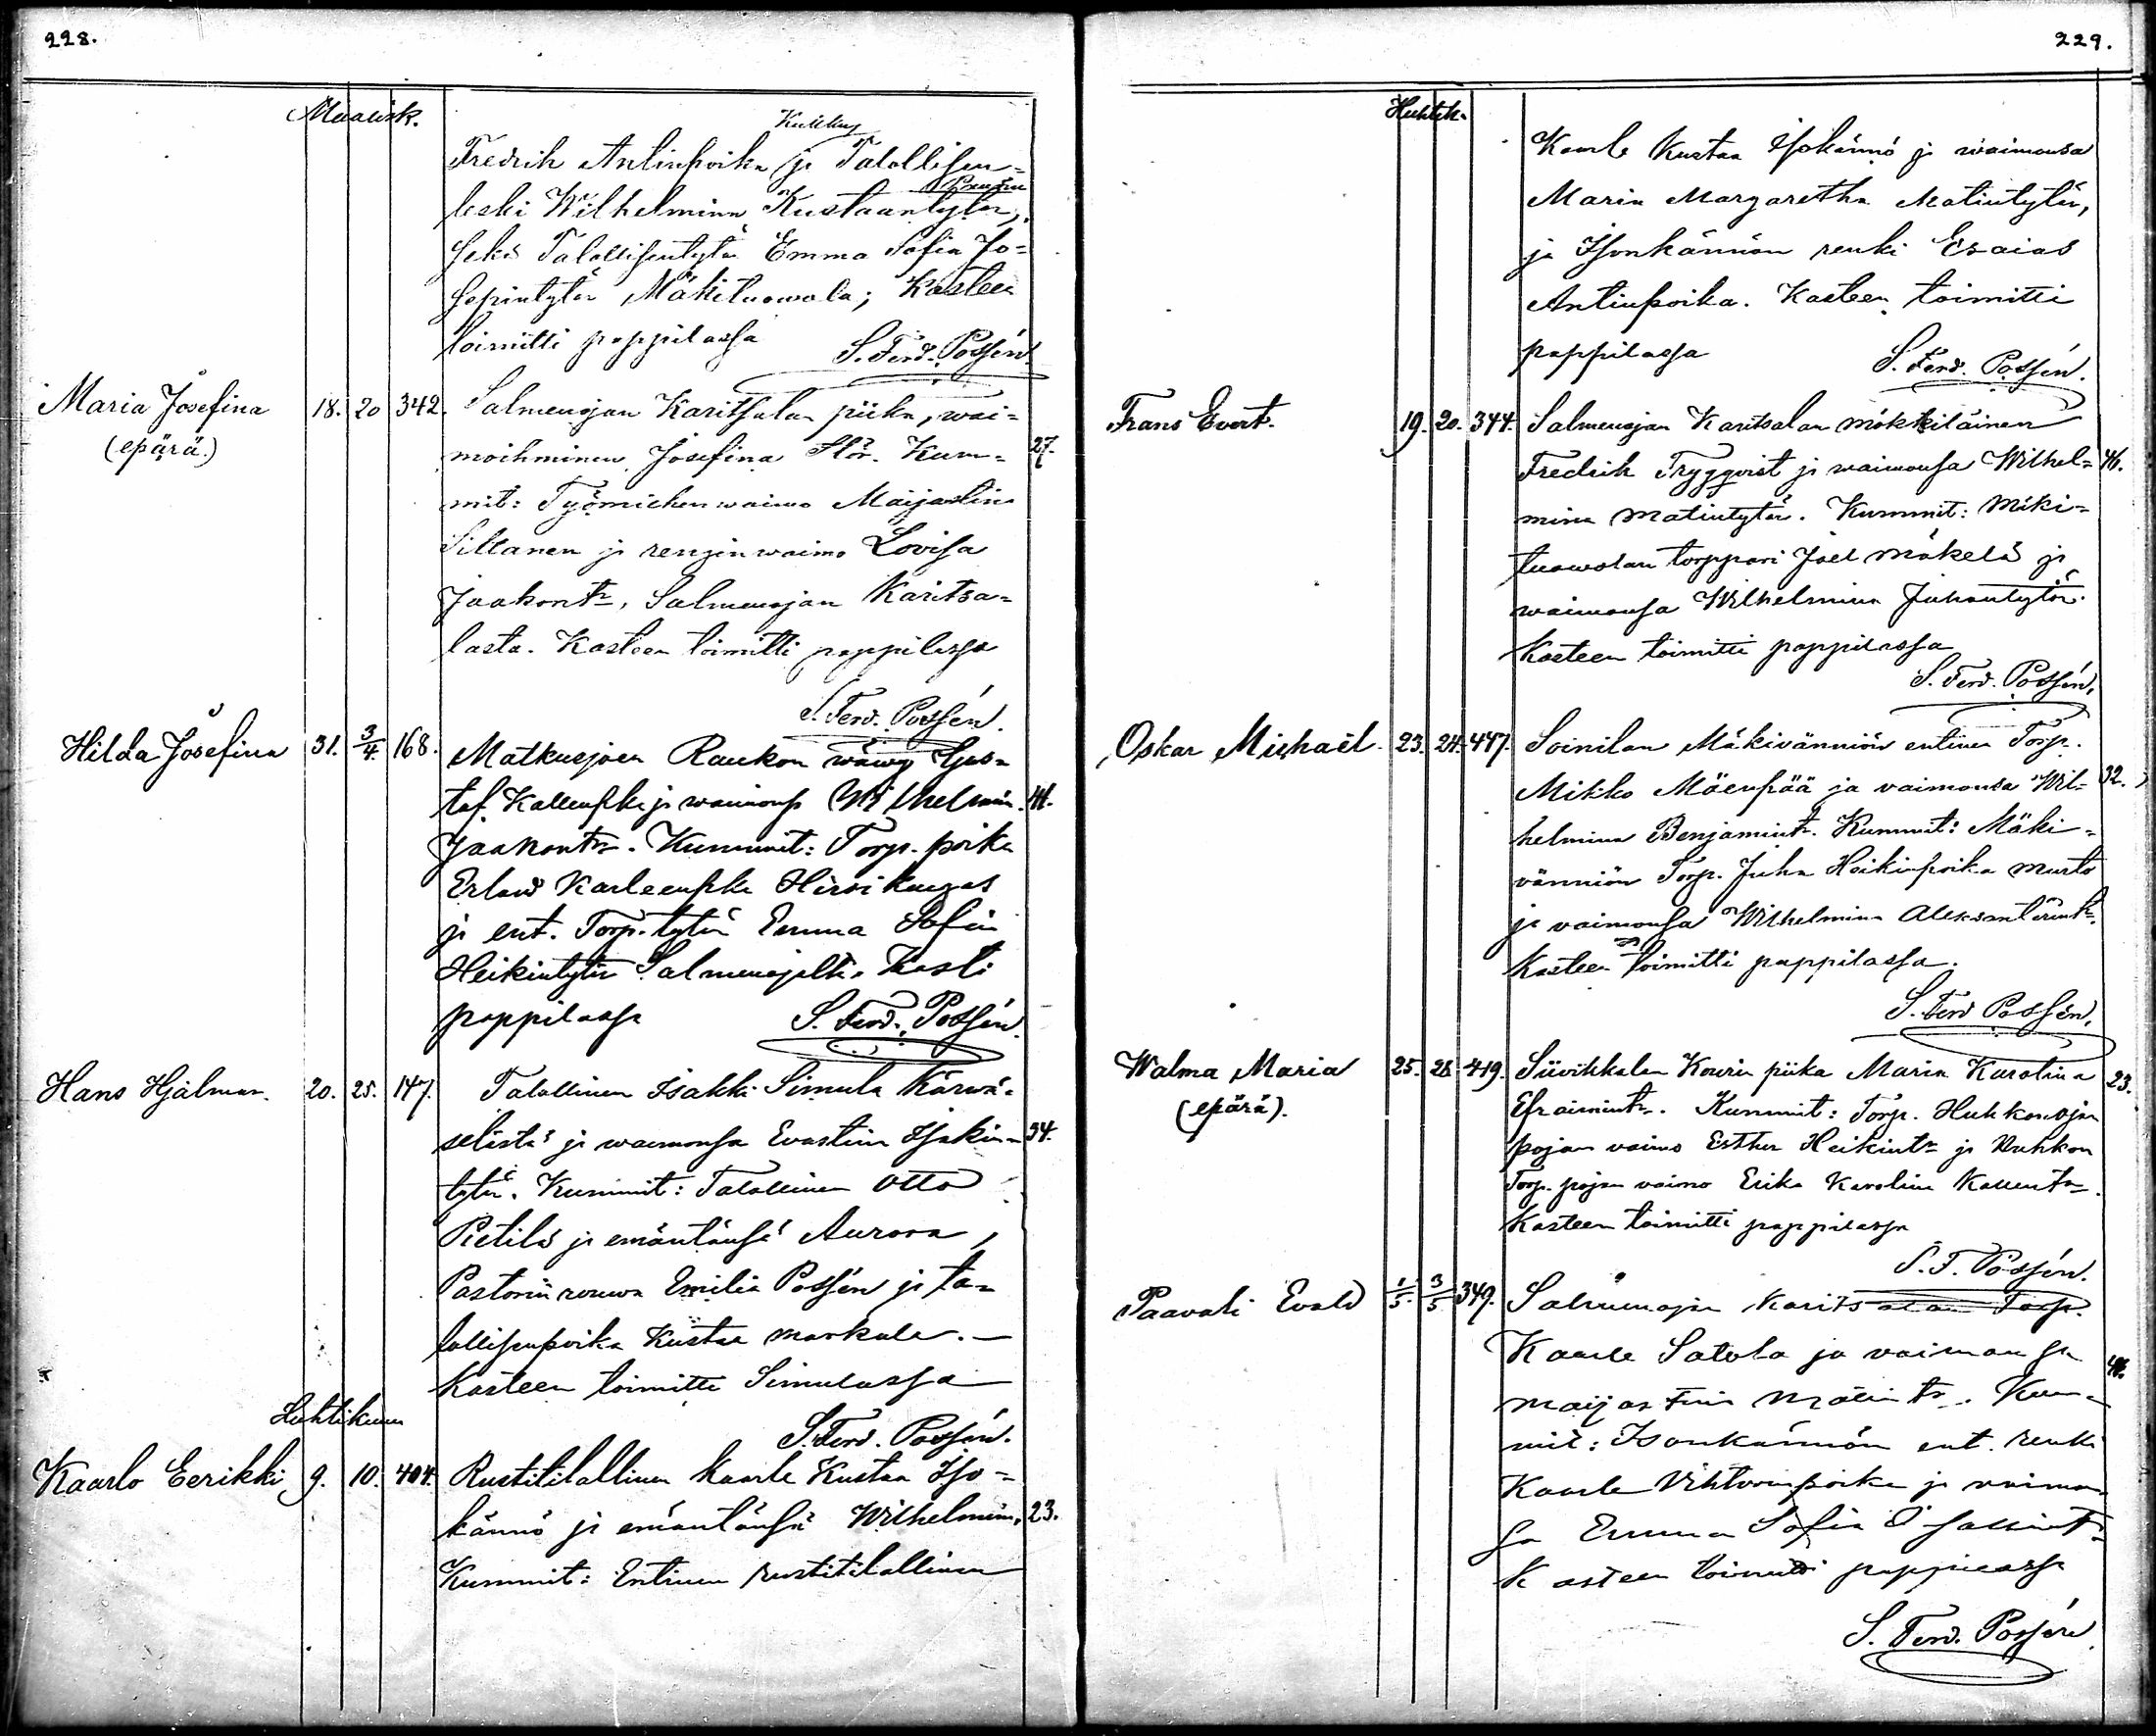 228.
Maalisk.
Kukkuj
Fredrik Antinpoika ja Talollisen=
leski Wilhelmina Kustaantytär,
sekä Talollisentytär Emma Sofia Jo=
sepintytär Mäkituowola; Kasteen
toimitti pappilassa S. Ferd. Possén.
Maria Josefina 18. 20 342. Salmenojan Karitsalan piika, wai=
(epärä.) moihminen Josefina Kum= 27.
mit: Työmiehen waimo Maijastina
Sillanen ja rengin waimo Lovisa
Jaakontr, Salmenojan Karitsa=
lasta. Kasteen toimitti pappilassa
S. Ferd. Possén.
Hilda Josefina 31. 3/4. 168. Matkusjoen Raukon wäwy Gus=
taf Kallenpka ja waimonsa Wilhelmin. 41.
Jaakontr. Kummit: Torp. poika
Erland Karleenpka Hirvikangas
ja ent. Torp. tytär Emma Sofia
Heikintytär Salmenojalta. Kasti
pappilassa S. Ferd. Possén.
Hans Hjalmar. 20. 25. 147. Talollinen Isakki Simula Kärwä=
selistä ja waimonsa Evastina Isakin= 34.
tytär. Kummit: Talollinen Otto
Pietilä ja emäntänsä Aurora,
Pastorin rouwa Emilia Possén ja ta=
lollisenpoika Kustaa Markula. —
Kasteen toimitti Simulassa
S. Ferd. Possén.
Huhtikuu
Kaarlo Eerikki 9. 10. 404. Rustitilallinen Kaarle Kustaa Iso=
kännö ja emäntänsä Wilhelmina. 23.
Kummit: Entinen rustitilallinen
229.
Huhtik.
Kaarle Kustaa Isokännö ja waimonsa
Maria Margaretha Matintytär,
ja Isonkännön renki Esaias
Antinpoika. Kasteen toimitti
pappilassa S. Ferd. Possén.
Frans Evert. 19. 20. 344. Salmenojan Karitsalan mökkiläinen
Fredrik Tryggvist ja waimonsa Wilhel= 46.
mina Matintytär. Kummit: Mäki=
tuowolan torppari Joel Mäkelä ja
waimonsa Wilhelmina Juhontytär.
Kasteen toimitti pappilassa
S. Ferd. Possén.
Oskar Michaël. 23. 24. 447. Soinilan Mäkivänniön entinen Torp.
Mikko Mäenpää ja vaimonsa Wil= 32.
helmina Benjamintr. Kummit: Mäki=
vänniön Torp. Juha Heikinpoika Murto
ja vaimonsa Wilhelmina Aleksanterintr.
Kasteen toimitti pappilassa.
S. Ferd Possén.
Walma Maria 25. 28. 419. Siivikkalan Kourin piika Maria Karolina 23.
(epärä). Efraimintr. Kummit: Torp. Huhkonojan
pojan vaimo Esther Heikintr ja Huhkon
Torp. pojan vaimo Erika Karolina Kallentr.
Kasteen toimitti pappilassa
S. F. Possén.
Paavali Evald 1/5. 3/5 349. Salmenojan Karitsalan Torp.
Kaarle Satola ja vaimonsa 46.
Maijastina Kum=
mit: Isonkännön ent. renki
Kaarle Vihtorinpoika ja vaimon=
sa Emma Sofia
Kasteen toimitti pappilassa
S. Ferd. Possén